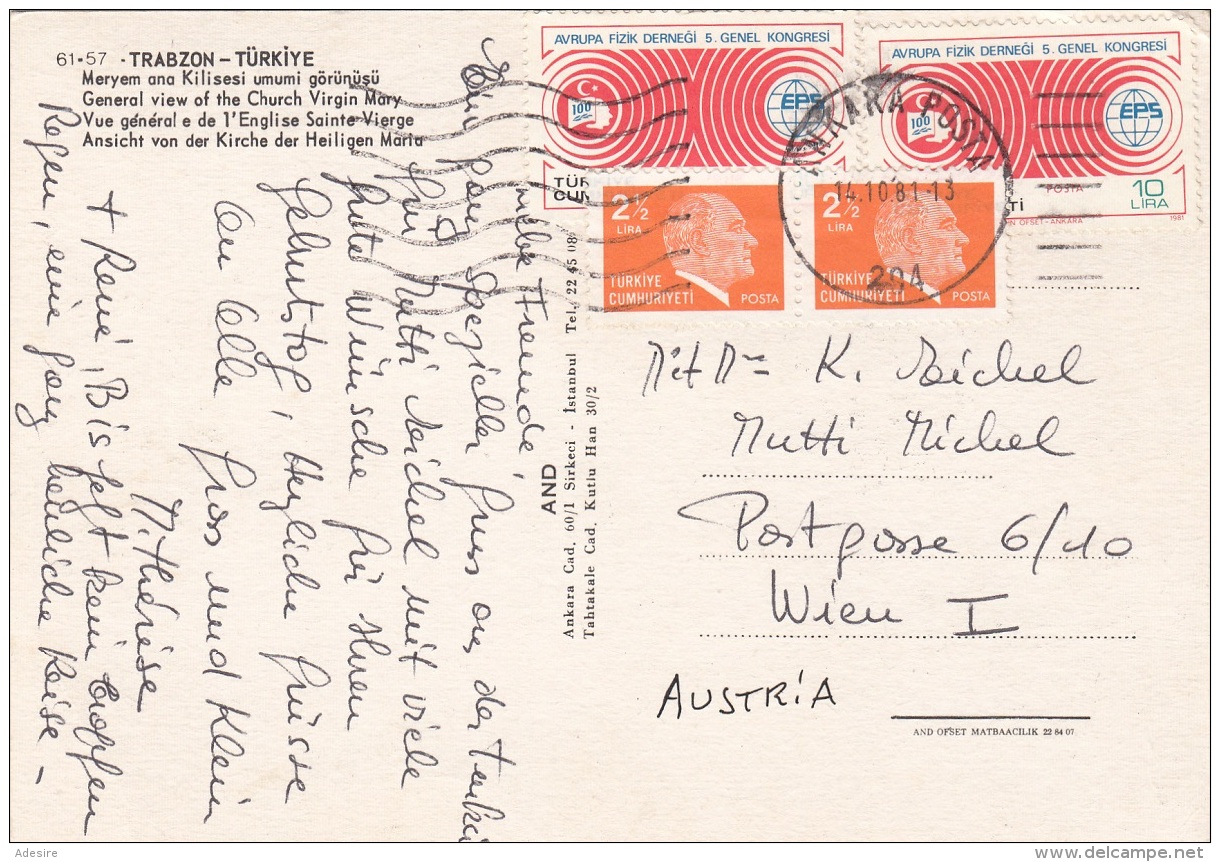 61-57 - TRABZON - TÜRKİYE
Meryem ana Kilisesi umumi görünüşü
General view of the Church Virgin Mary
Vue général e de l'Englise Sainte Vierge
Ansicht von der Kirche der Heiligen Maria
AVRUPA FİZİK DERNEĞİ 5. GENEL KONGRESİ
100
EPS
AVRUPA FİZİK DERNEĞİ 5. GENEL KONGRESİ
100
EPS
POSTA
10
LİRA
1981
2½
LİRA
TÜRKİYE
CUMHURİYETİ
POSTA
2½
LİRA
TÜRKİYE
CUMHURİYETİ
POSTA
ANKARA POSTA
14.10.81-13
204
liebe Freunde,
spezieller Gruss aus der Türkei
für Mutti Michel mit viele
gute Wünsche für Ihren
Geburtstag, herzliche Grüsse
an Alle Gross und Klein
M. Thérèse
+ René, Bis jetzt kein Tropfen
Regen, eine ganz herrliche Reise -
AND
Ankara Cad, 60/1 Sirkeci - İstanbul Tel, 22 45 08
Tahtakale Cad. Kutlu Han 30/2
K.
Mutti Michel
Postgasse 6/10
Wien I
AUSTRiA
AND OFSET MATBAACILIK 22 84 07
Adesire
www.delcampe.net